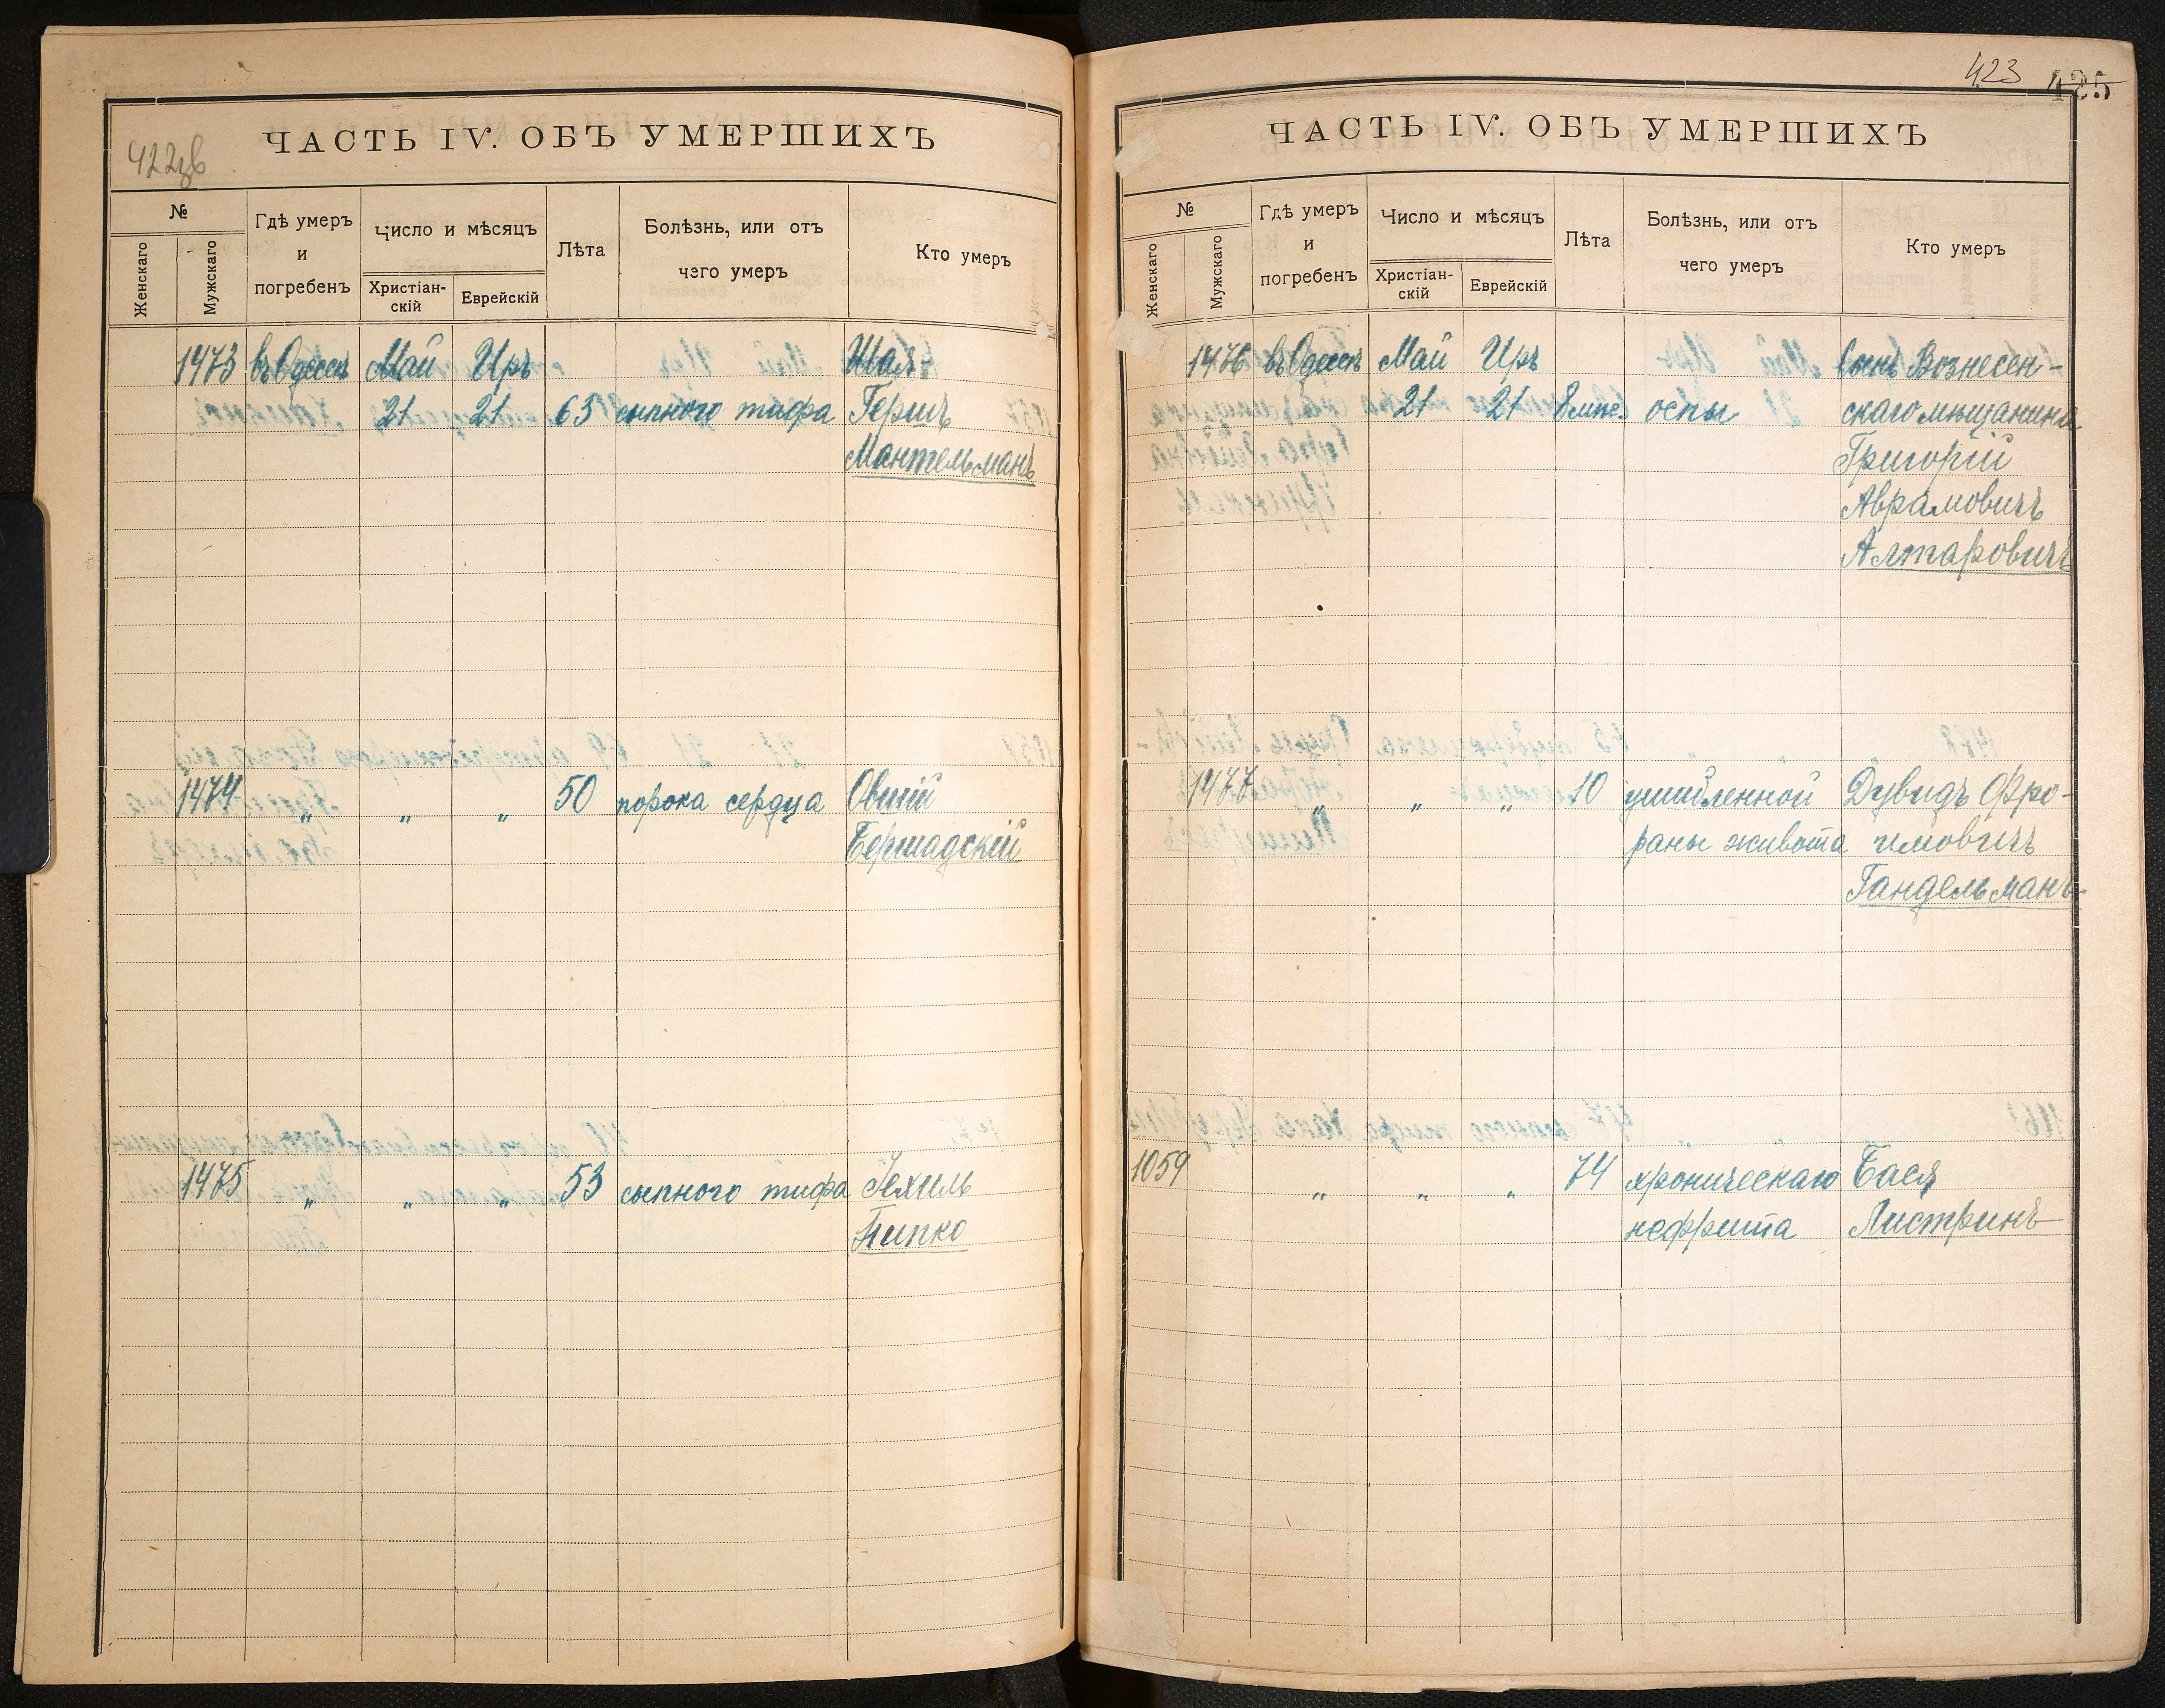 422зв
ЧАСТЬ IV. ОБЪ УМЕРШИХЪ
№
Женскаго
Мужскаго
Гдѣ умеръ
и
погребенъ
Число и мѣсяцъ
Христіан-
скій
Еврейскій
Лѣта
Болѣзнь, или отъ
чего умеръ
Кто умеръ
1473 въ Одессѣ Май Иръ Шая-
21 21 63 сыпного тифа Гершъ
Мантельманъ
1474 „ „ „ 50 порока сердца Овшій
Бершадскій
1475 „ „ „ 53 сыпного тифа Іехиль
Пипко
423 425
ЧАСТЬ IV. ОБЪ УМЕРШИХЪ
№
Женскаго
Мужскаго
Гдѣ умеръ
и
погребенъ
Число и мѣсяцъ
Христіан-
скій
Еврейскій
Лѣта
Болѣзнь, или отъ
чего умеръ
Кто умеръ
1476 въ Одессѣ Май Иръ Сынъ Вознесен-
21 21 оспы скаго мѣщанина
Григорій
Аврамовичъ
Алтаровичъ
1477 „ „ „ 10 ушибленной Дувидъ Фро-
раны живота имовичъ
Гандельманъ
1059 „ „ „ 74 хроническаго Бася
нефрита Листринъ